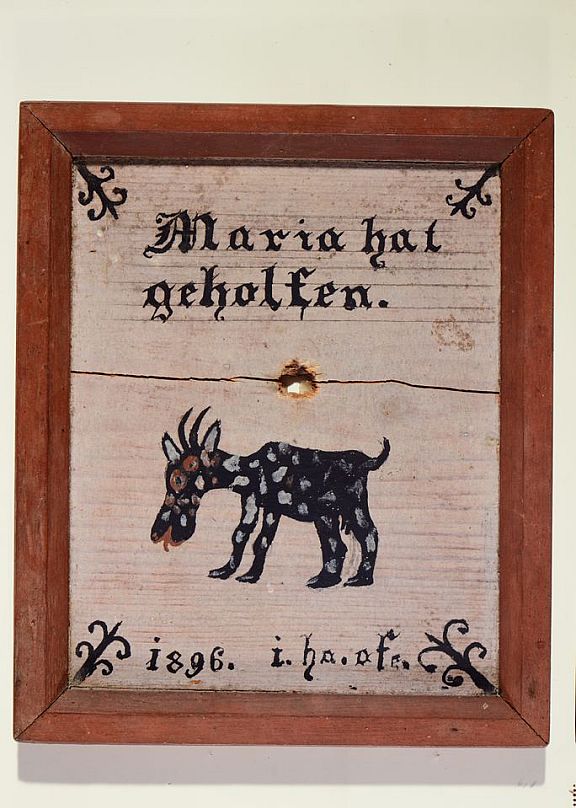 Maria hat
geholfen.
1896. i. ha. ofe.